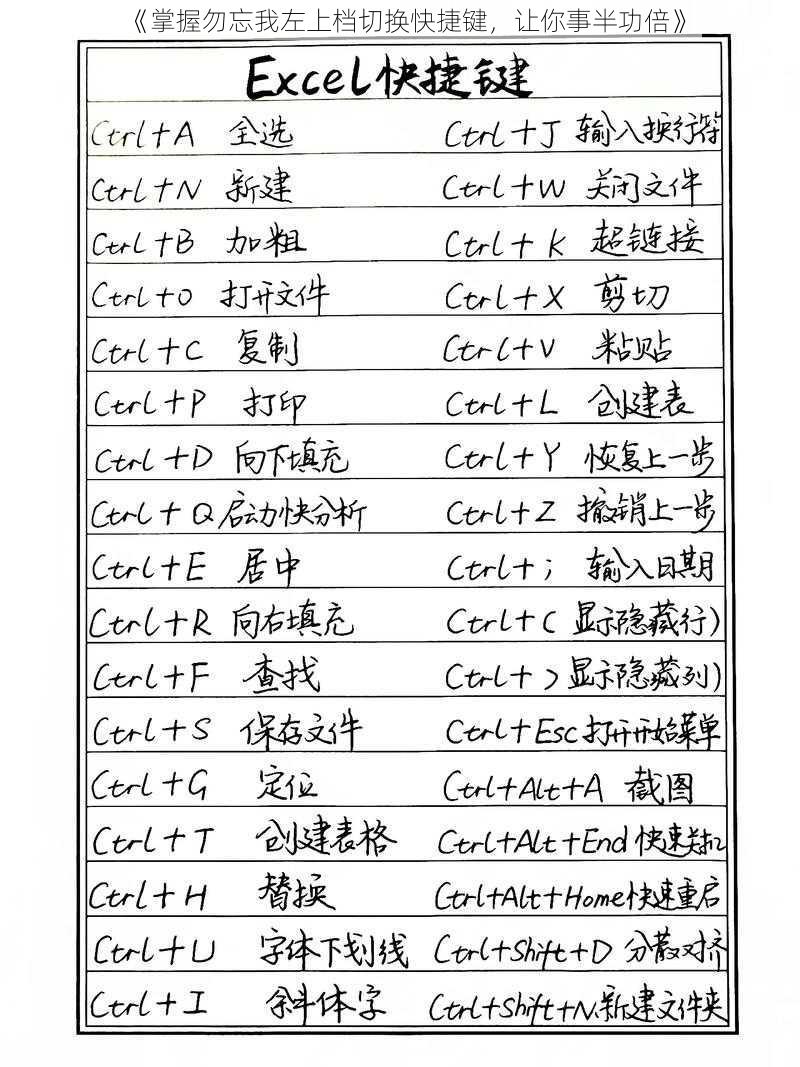 《掌握勿忘我左上档切换快捷键，让你事半功倍》
Excel快捷键
Ctrl+A 全选 Ctrl+J 输入换行符
Ctrl+N 新建 Ctrl+W 关闭文件
Ctrl+B 加粗 Ctrl+K 超链接
Ctrl+O 打开文件 Ctrl+X 剪切
Ctrl+C 复制 Ctrl+V 粘贴
Ctrl+P 打印 Ctrl+L 创建表
Ctrl+D 向下填充 Ctrl+Y 恢复上一步
Ctrl+Q 启动快分析 Ctrl+Z 撤销上一步
Ctrl+E 居中 Ctrl+; 输入日期
Ctrl+R 向右填充 Ctrl+( 显示隐藏行)
Ctrl+F 查找 Ctrl+> 显示隐藏列)
Ctrl+S 保存文件 Ctrl+Esc 打开开始菜单
Ctrl+G 定位 Ctrl+Alt+A 截图
Ctrl+T 创建表格 Ctrl+Alt+End 快速关机
Ctrl+H 替换 Ctrl+Alt+Home快速重启
Ctrl+U 字体下划线 Ctrl+Shift+D 分散对齐
Ctrl+I 斜体字 Ctrl+Shift+N新建文件夹